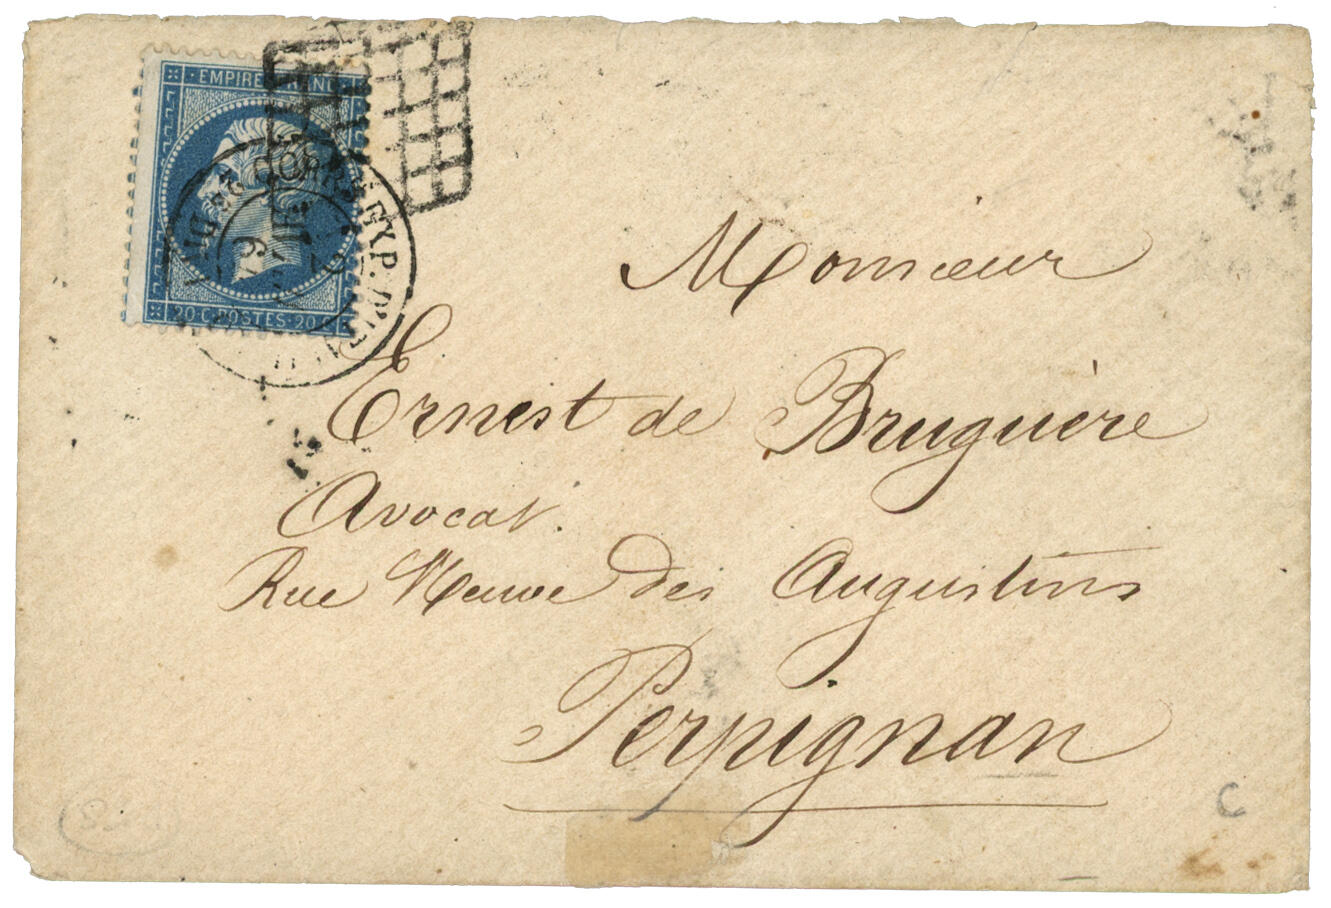 EMPIRE FRANC
20·C·POSTES·20·C
CORPS EXP. D'ITALIE
Monsieur
Ernest de Bruguère
Avocat.
Rue Neuve des Augustins
Perpignan
C